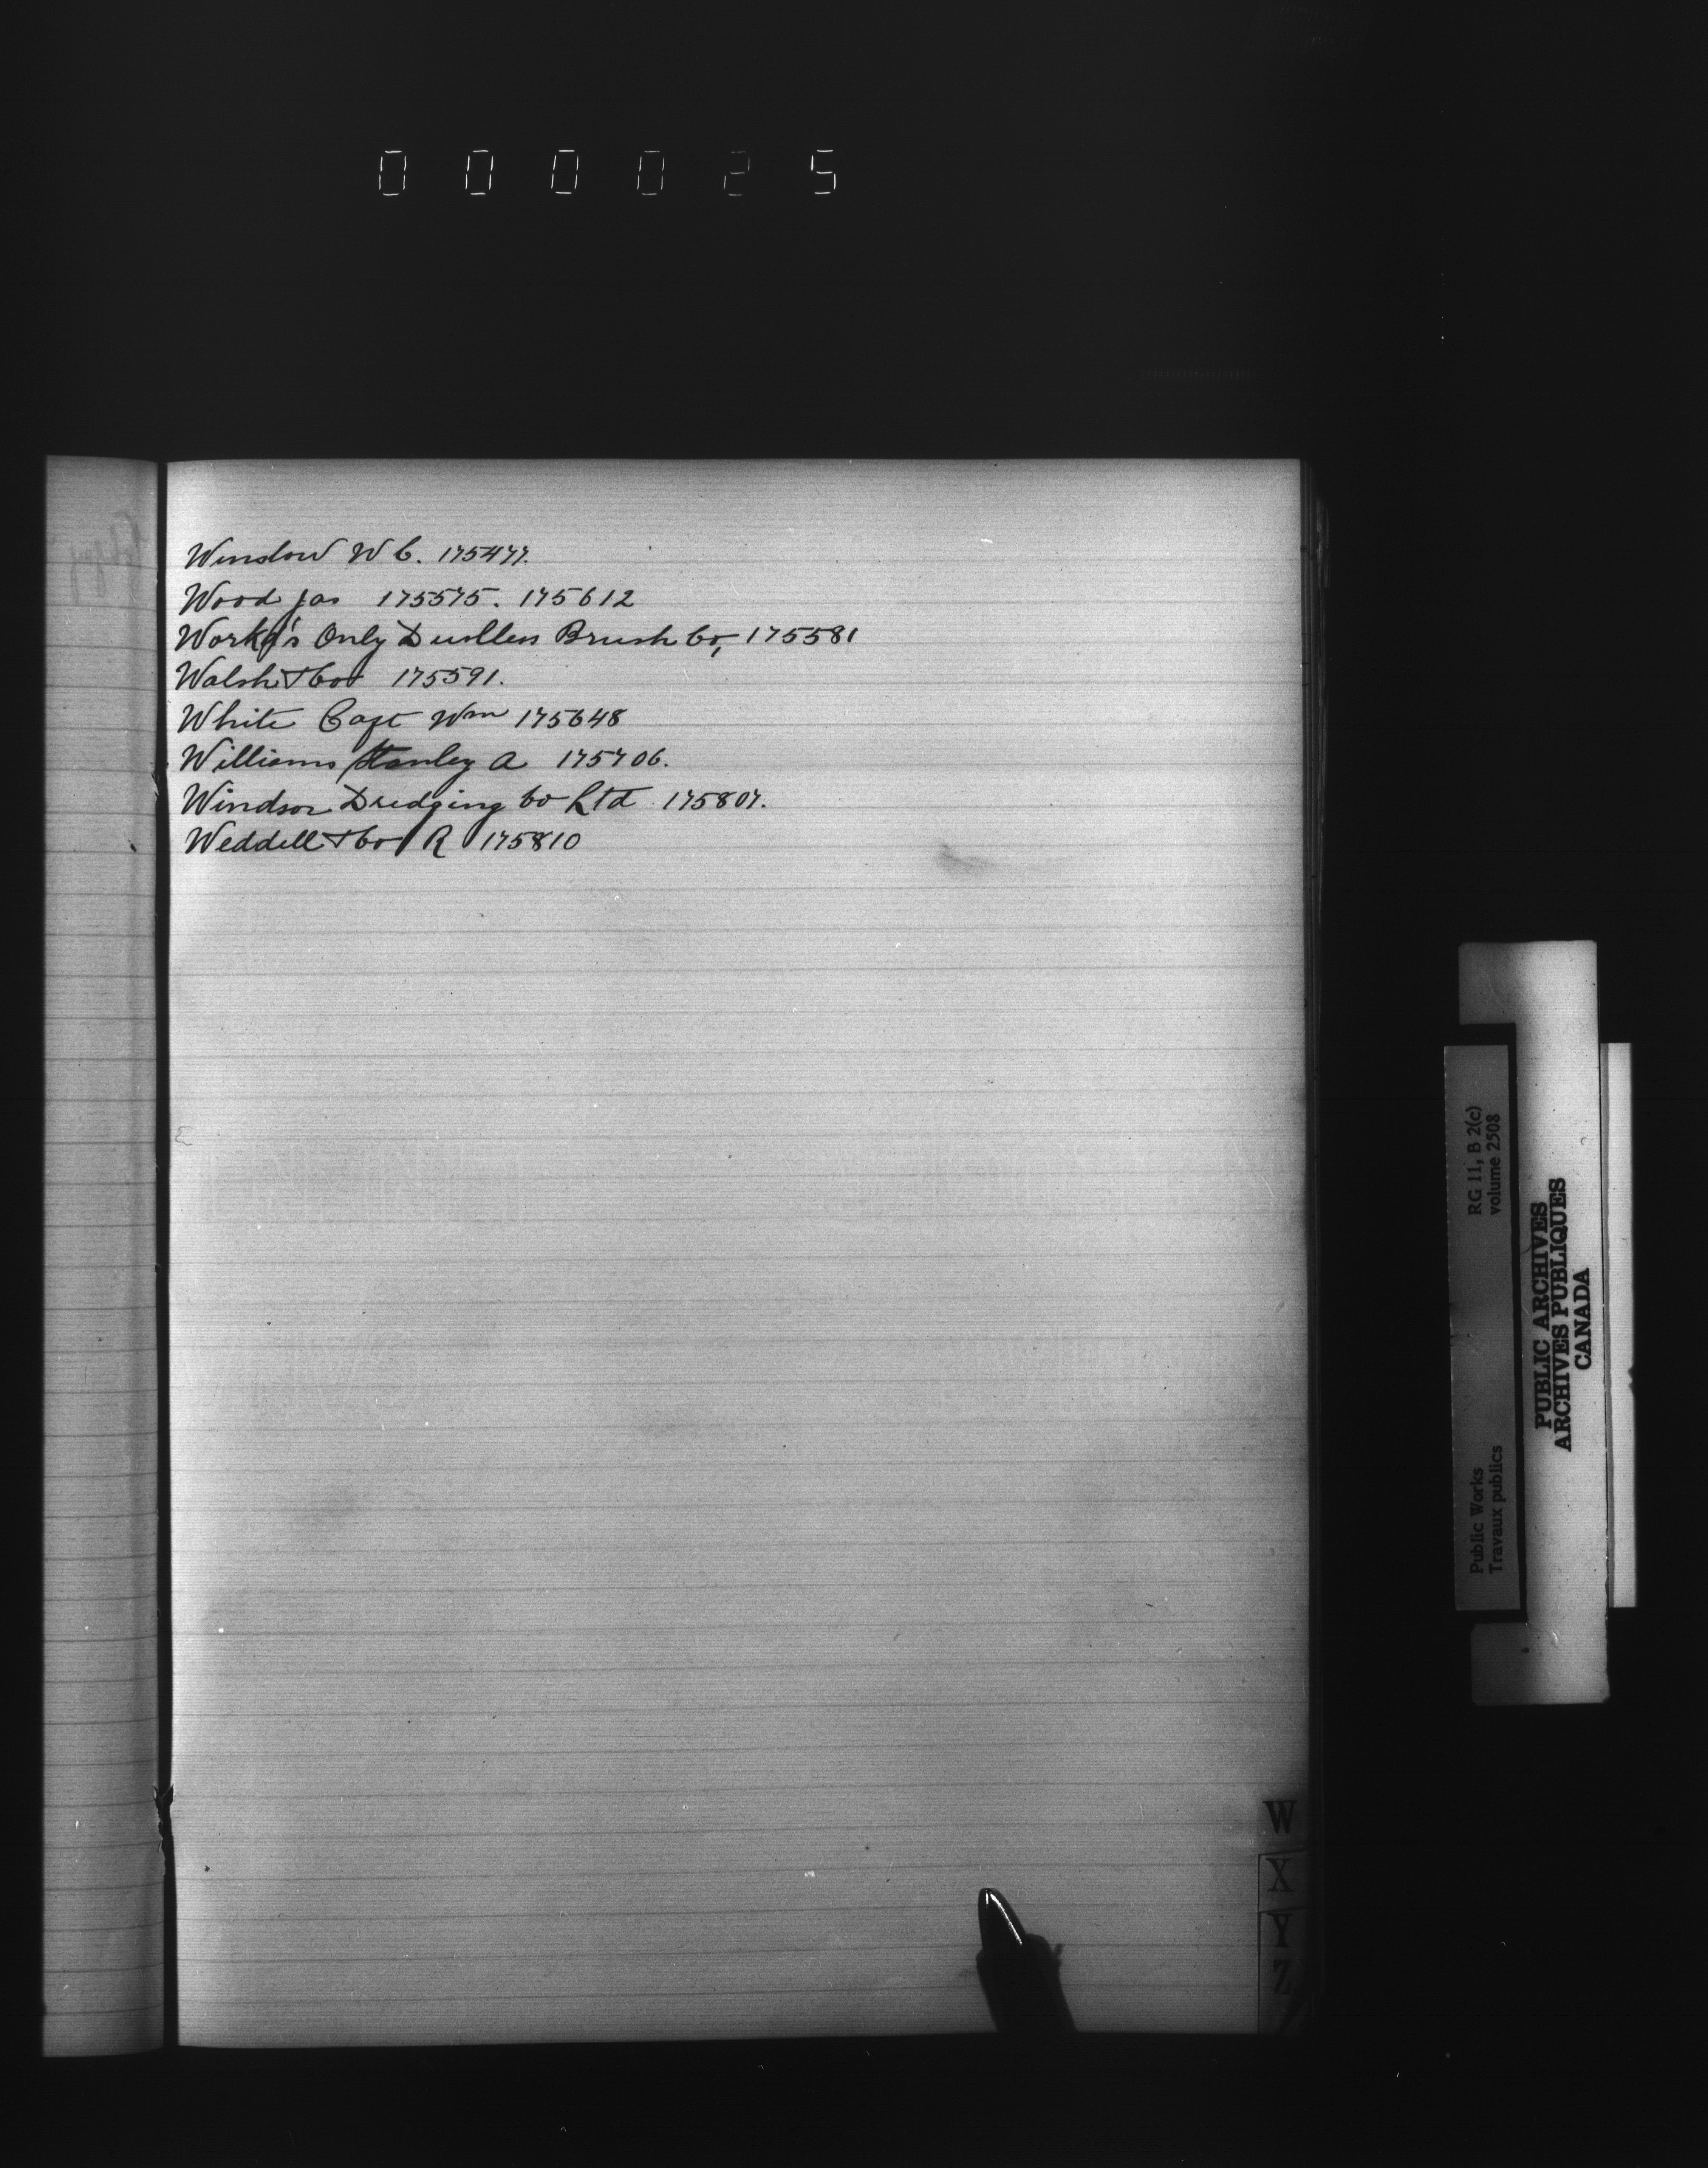 000025
Winslow W C. 175477.
Wood Jas 175575. 175612
World's Only Dustless Brush Co, 175581
Walsh & Co 175591.
White Capt Wm 175648
Williams Stanley A 175706.
Windsor Dredging Co Ltd 175807.
Weddell & Co R 175810
W
X
Y
Z
RG 11, B 2(c)
volume 2508
Public Works
Travaux publics
PUBLIC ARCHIVES
ARCHIVES PUBLIQUES
CANADA